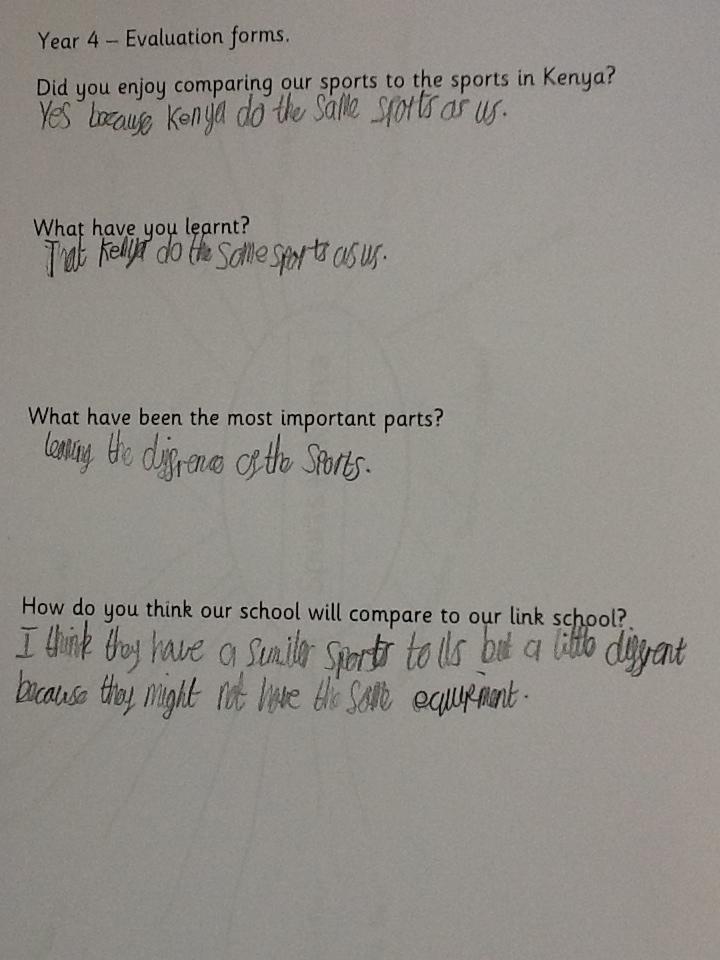 Year 4 – Evaluation forms.
Did you enjoy comparing our sports to the sports in Kenya?
Yes because Kenya do the same sports as us.
What have you learnt?
That Kenya do the same sports as us.
What have been the most important parts?
learning the difrence of the sports.
How do you think our school will compare to our link school?
I think they have a similar sports to us but a little diffrent
because they might not have the same equipment.